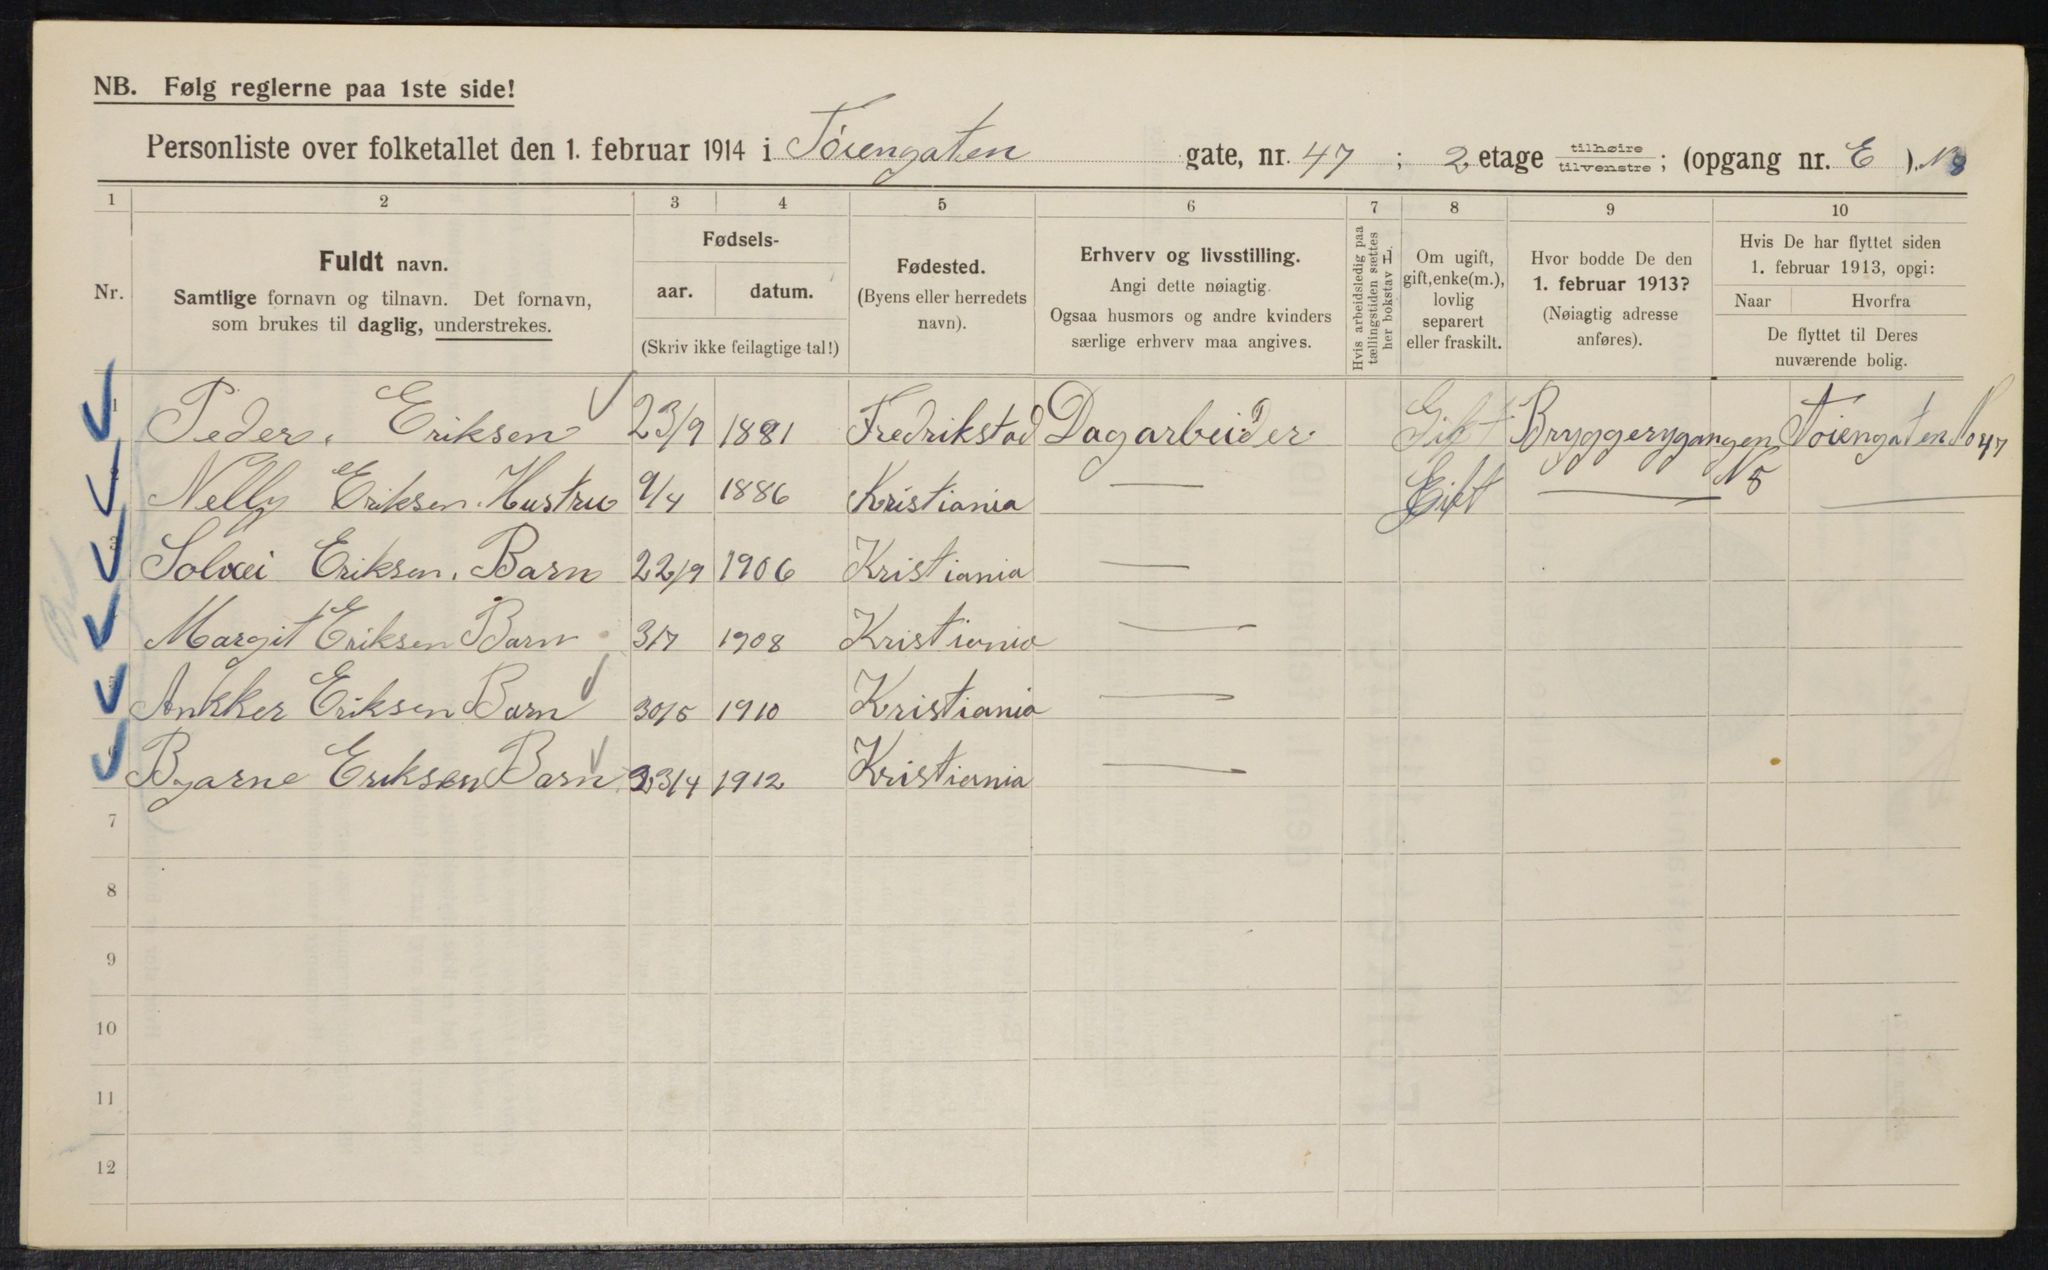 NB. Følg reglerne paa 1ste side!
Personliste over folketallet den 1. februar 1914 i Tóiengaten gate, nr. 47 ; 2 etage tilhøire tilvenstre ; (opgang nr. E ). N 8
1 2 3 4 5 6 7 8 9 10
Nr.
Fuldt navn.
Samtlige fornavn og tilnavn. Det fornavn,
som brukes til daglig, understrekes.
Fødsels-
aar. datum.
(Skriv ikke feilagtige tal!)
Fødested.
(Byens eller herredets
navn).
Erhverv og livsstilling.
Angi dette nøiagtig.
Ogsaa husmors og andre kvinders
særlige erhverv maa angives.
Hvis arbeidsledig paa
tællingstiden sættes
her bokstav L.
Om ugift,
gift, enke(m.),
lovlig
separert
eller fraskilt.
Hvor bodde De den
1. februar 1913?
(Nøiagtig adresse
anføres).
Hvis De har flyttet siden
1. februar 1913, opgi:
Naar Hvorfra
De flyttet til Deres
nuværende bolig.
1 Peder. Eriksen 23/9 1881 Fredrikstad Dagarbeider Gift Bryggerygangen N 5 Tóiengaten No 47
Nelly Eriksen. Hustru 9/4 1886 Kristiania — Gift — —
3 Solvei Eriksen. Barn 22/9 1906 Kristiania —
Margit Eriksen Barn 3/7 1908 Kristiania —
Ankker Eriksen Barn 30/5 1910 Kristiania —
Bjarne Eriksen Barn 23/4 1912 Kristiania —
7
8
9
10
11
12